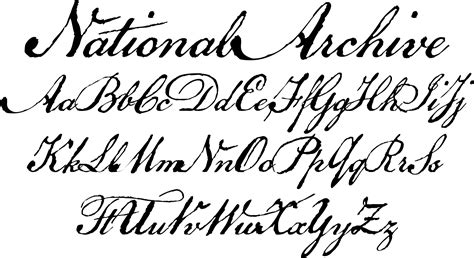 National Archive
AaBbCcDdEeFfGgHhIiJj
KkLlMmNnOoPpQqRrSs
TtUuVvWwXxYyZz